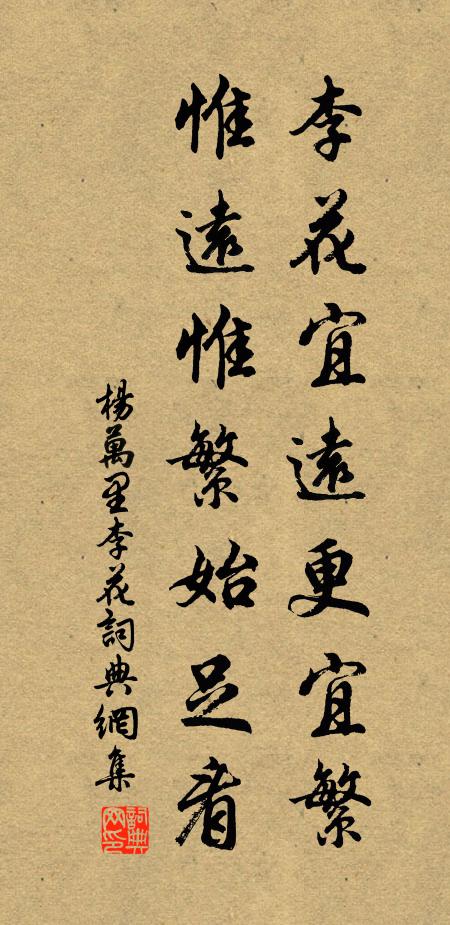 李花宜遠更宜繁
惟遠惟繁始足看
楊萬里李花詞典網集
詞典網印